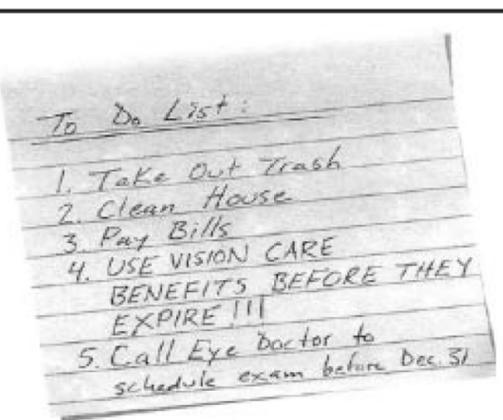 To Do List:
1. Take Out Trash
2. Clean House
3. Pay Bills
4. USE VISION CARE
BENEFITS BEFORE THEY
EXPIRE!!!
5. Call Eye Doctor to
schedule exam before Dec. 31